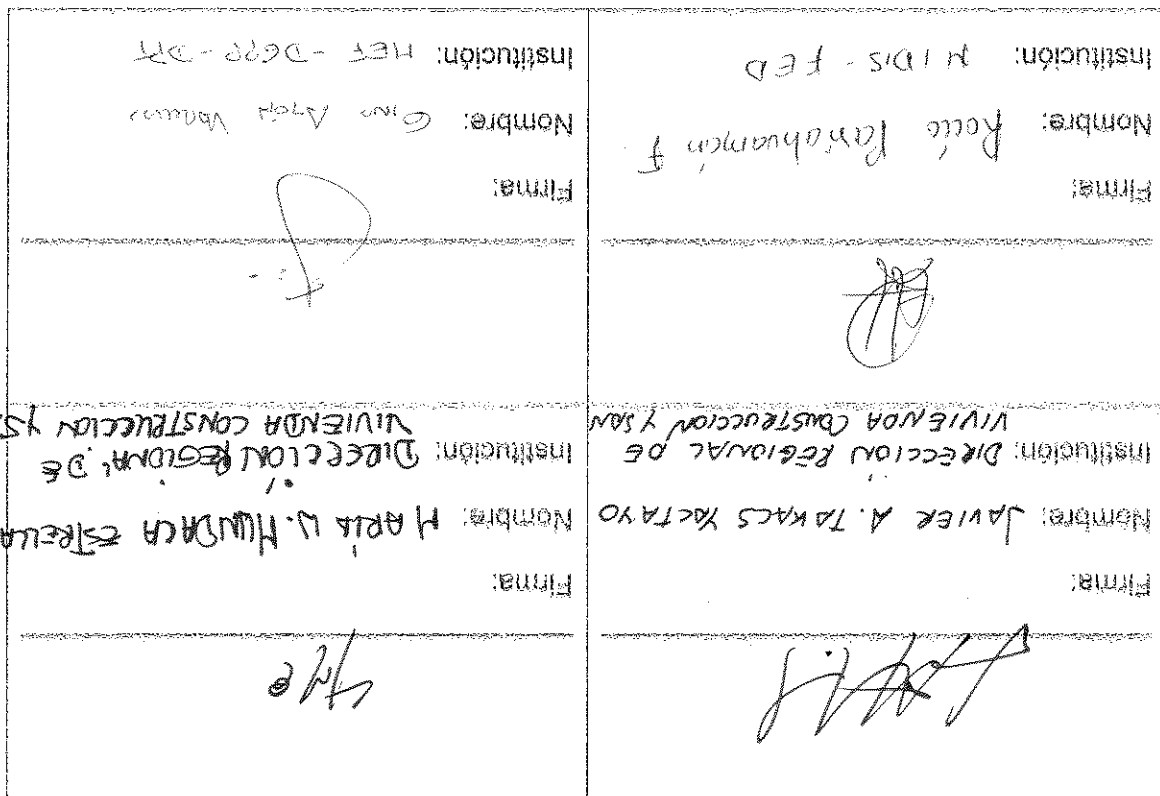 Firma:
Nombre: JAVIER A. TAKACS YACTAYO
Institución: DIRECCION REGIONAL DE
VIVIENDA CONSTRUCCION Y SAN
Firma:
Nombre: MARÍA W. MUNDACA ESTRELLA
Institución: DIRECCIÓN REGIONAL DE
VIVIENDA CONSTRUCCION Y S.
Firma:
Nombre: Rocío Pariahuamán F.
Institución: MIDIS - FED
Firma:
Nombre: Gino
Institución: MEF - DGPP - DPT